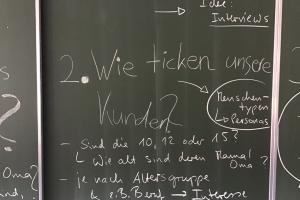 Idee:
Interviews
2. Wie ticken unsere
Kunden?
Menschen-
typen
↳ Personas
- Sind die 10, 12 oder 15?
↳ Wie alt sind deren Mama?
Oma?
- je nach Altersgruppe
↳ z.B. Beruf → Interesse
Oma?